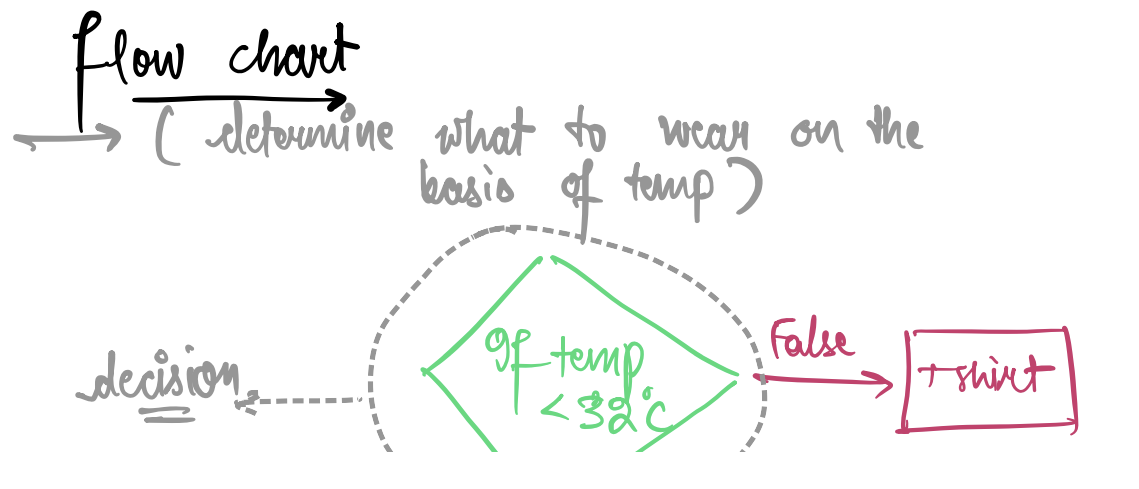 flow chart
( determine what to wear on the
basis of temp )
False
If temp
< 32°C
t-shirt
decision